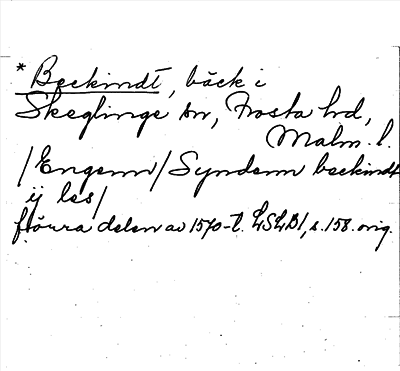 * Beckindt, bäck i
Skeglinge sn, Frosta hd,
Malm. l.
/Engenn/ Syndenn beckindt
ij les/
förra delen av 1570-t. LSLB1, s. 158. orig.